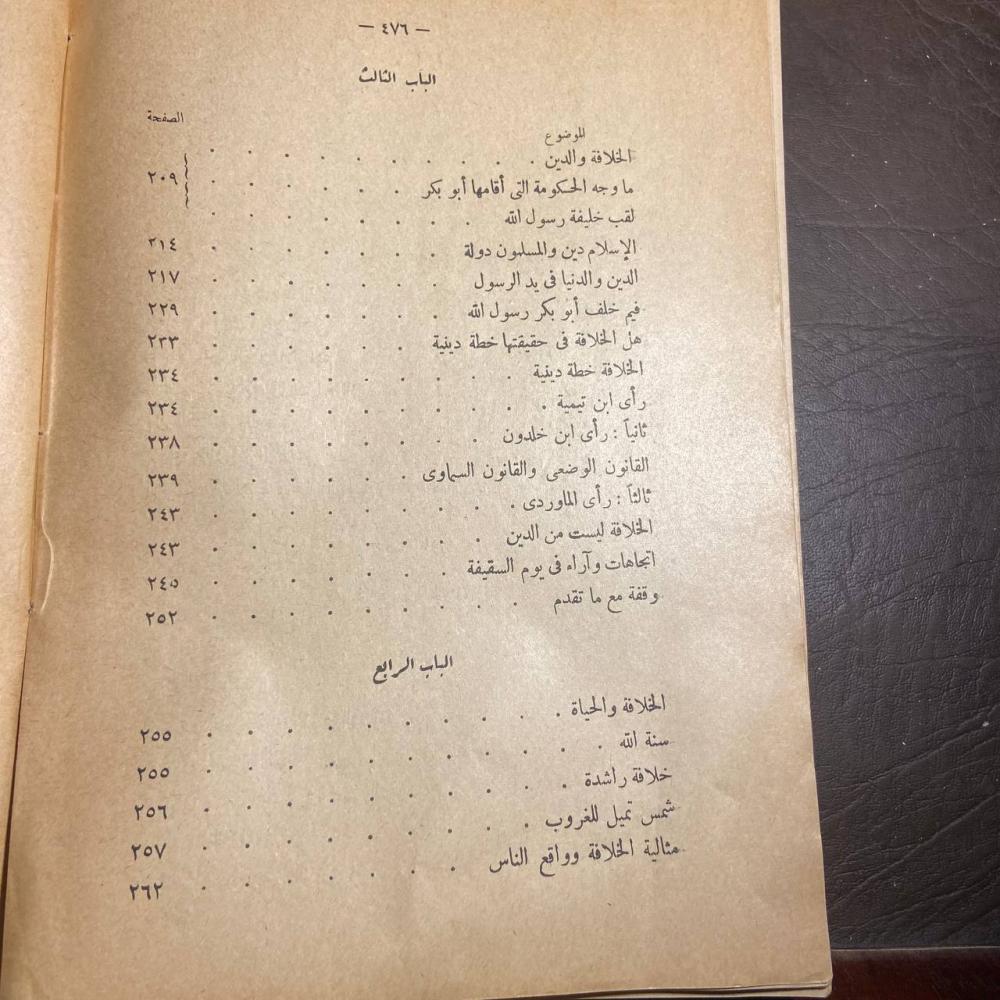 — ٤٧٦ —
الباب الثالث
الموضوع الصفحة
الخلافة والدين . . . . . . . . .
ما وجه الحكومة التى أقامها أبو بكر . . . . . . ٢٠٩
لقب خليفة رسول الله . . . . . . .
الإسلام دين والمسلمون دولة . . . . . . ٢١٤
الدين والدنيا فى يد الرسول . . . . . . ٢١٧
فيم خلف أبو بكر رسول الله . . . . . . ٢٢٩
هل الخلافة فى حقيقتها خطة دينية . . . . . . ٢٣٣
الخلافة خطة دينية . . . . . . . . ٢٣٤
رأى ابن تيمية . . . . . . . . . ٢٣٤
ثانياً : رأى ابن خلدون . . . . . . . ٢٣٨
القانون الوضعى والقانون السماوى . . . . . . ٢٣٩
ثالثاً : رأى الماوردى . . . . . . . . ٢٤٣
الخلافة ليست من الدين . . . . . . . ٢٤٣
اتجاهات وآراء فى يوم السقيفة . . . . . . ٢٤٥
وقفة مع ما تقدم . . . . . . . . ٢٥٢
الباب الرابع
الخلافة والحياة . . . . . . . . . ٢٥٥
سنة الله . . . . . . . . . . ٢٥٥
خلافة راشدة . . . . . . . . . ٢٥٦
شمس تميل للغروب . . . . . . . . ٢٥٧
مثالية الخلافة وواقع الناس . . . . . . . ٢٦٢